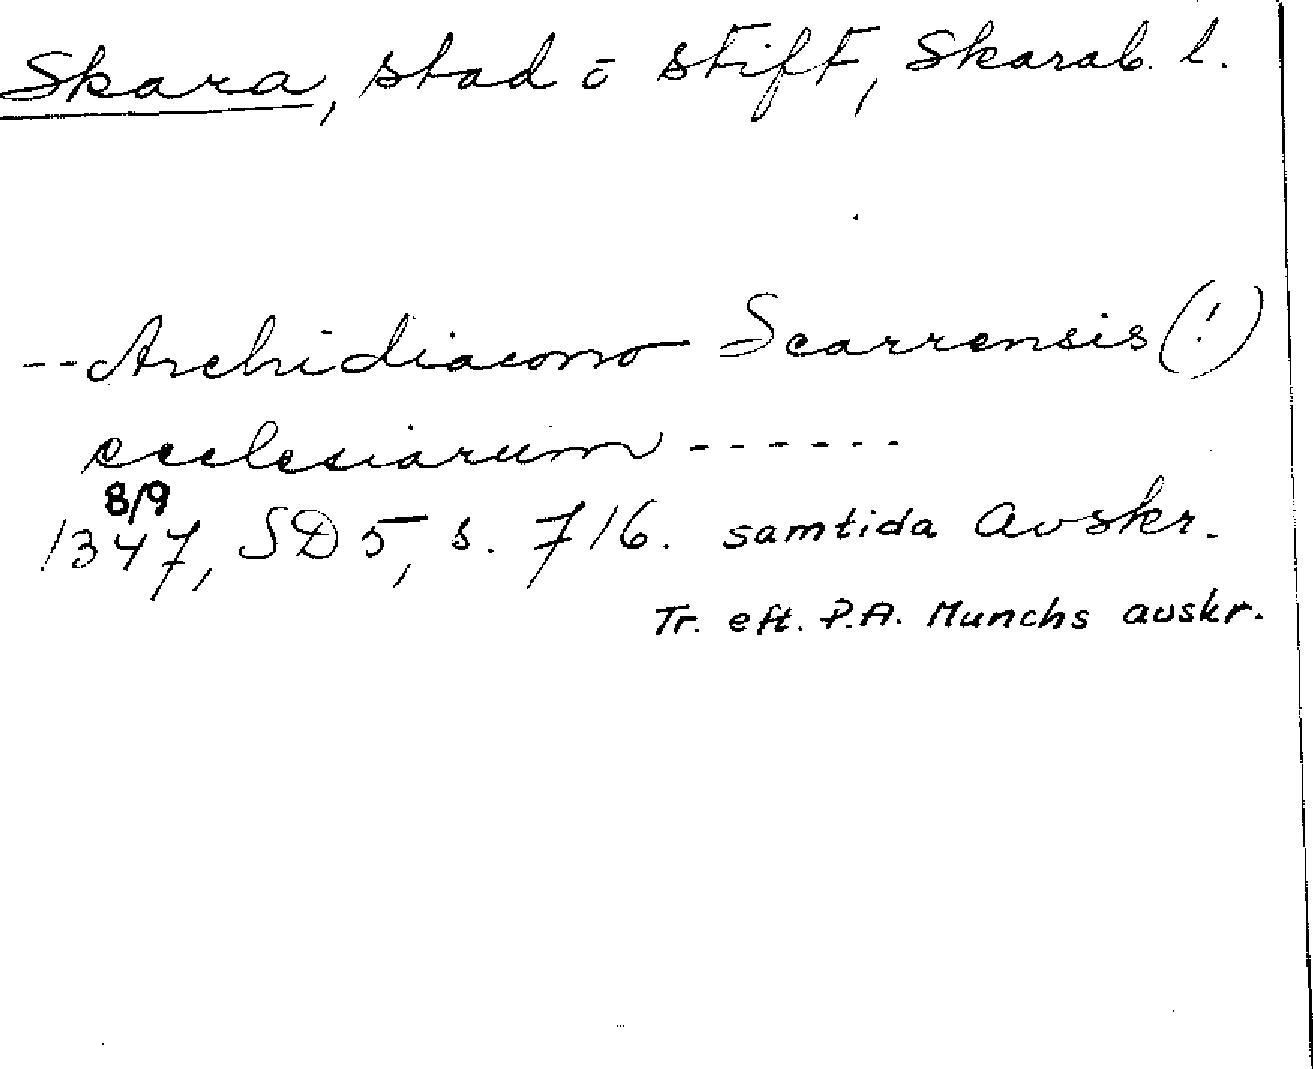 Skara, stad o stift, Skarab. l.
--Archidiacono Scarrensis (!)
ecclesiarum ------
8/9
1347, SD 5, s. 716. samtida Avskr.
Tr. eft. P.A. Munchs avskr.